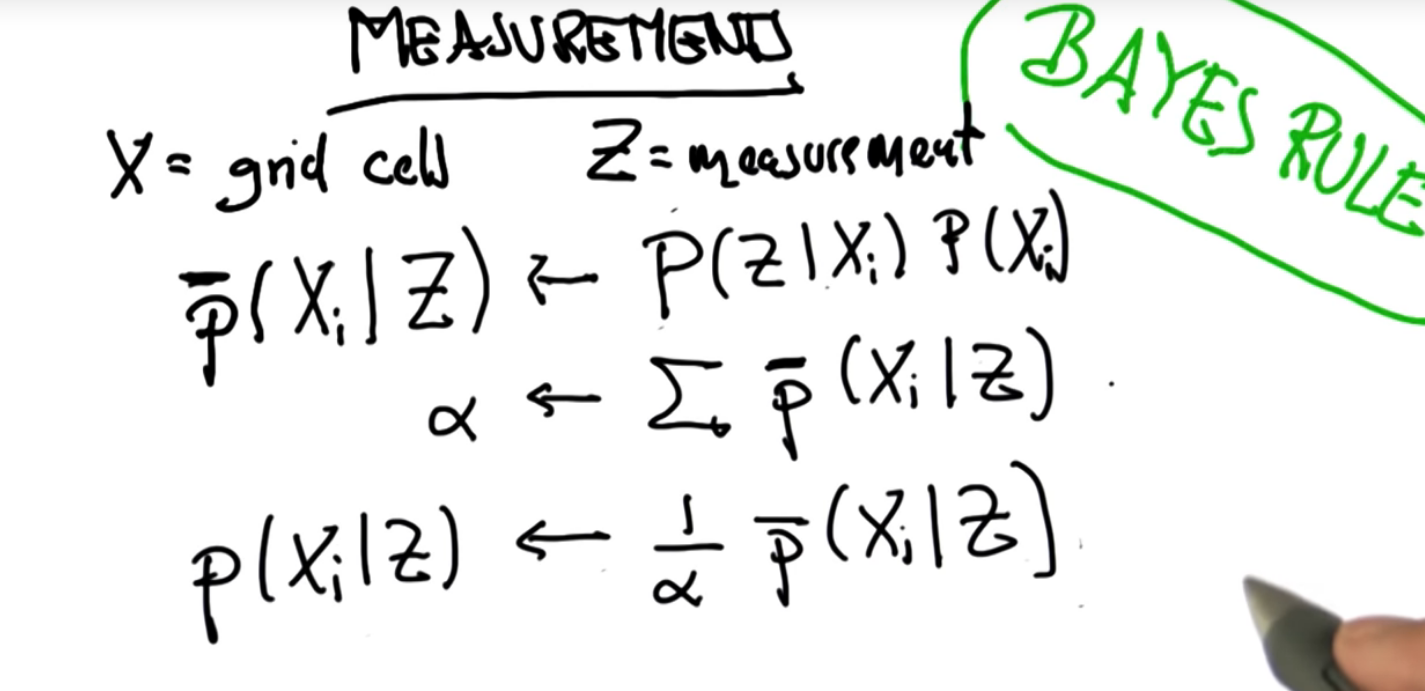 MEASUREMEND
BAYES RULE
X = grid cell Z = measurement
p̄(Xᵢ|Z) ← P(Z|Xᵢ) P(Xᵢ)
α ← Σ p̄(Xᵢ|Z)
p(Xᵢ|Z) ← 1/α p̄(Xᵢ|Z)